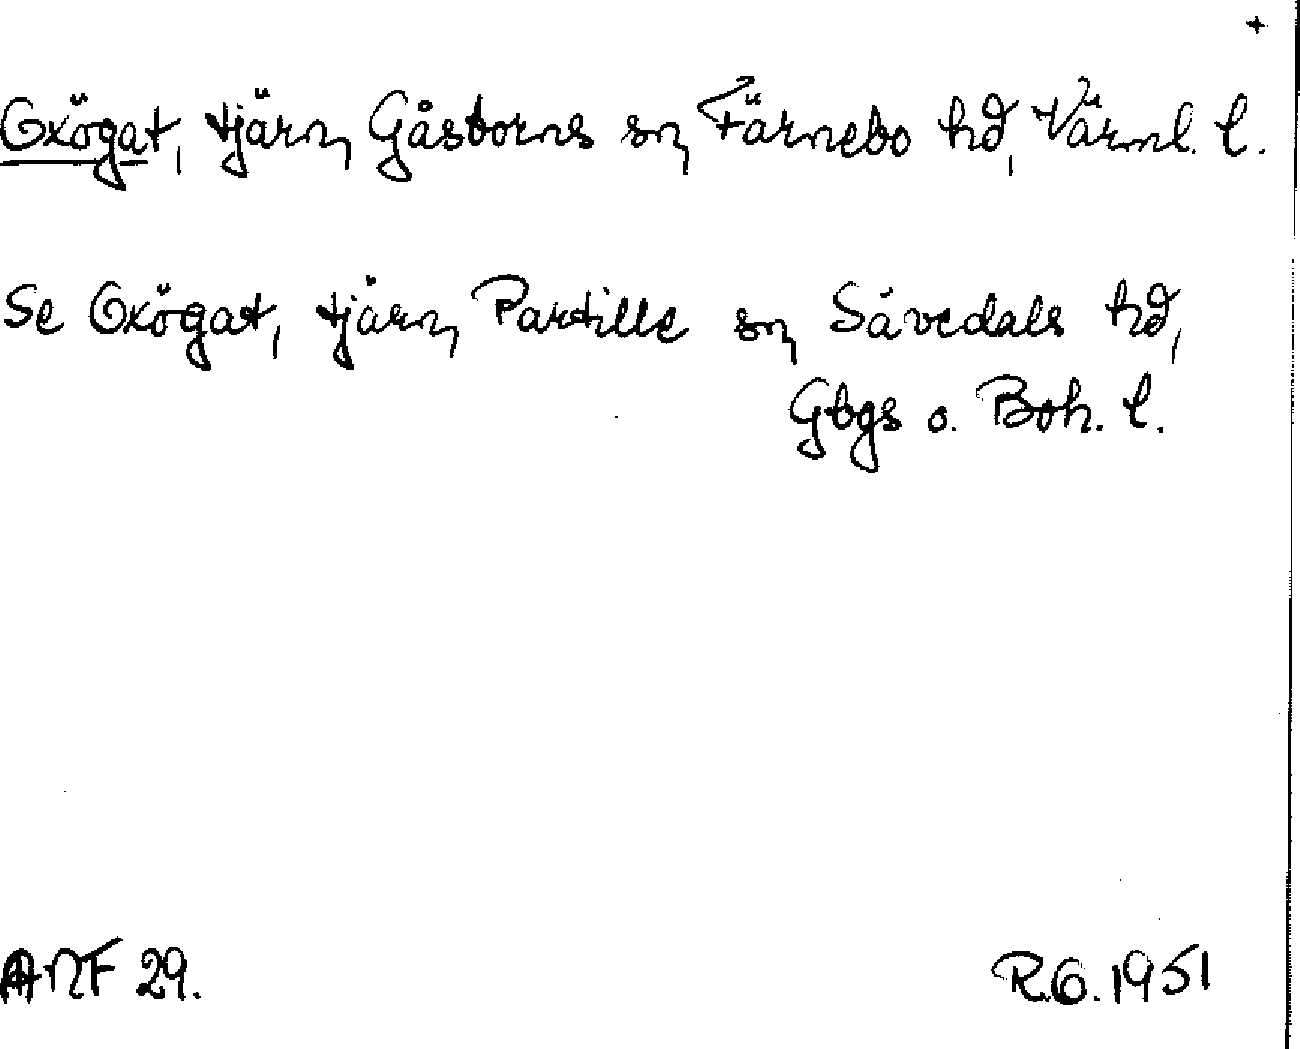 +
Oxögat, tjärn, Gåsborns sn, Färnebo hd, Värml. l.
Se Oxögat, tjärn, Partille sn, Sävedals hd,
Gbgs o. Boh. l.
ANF 29.
R.O. 1951